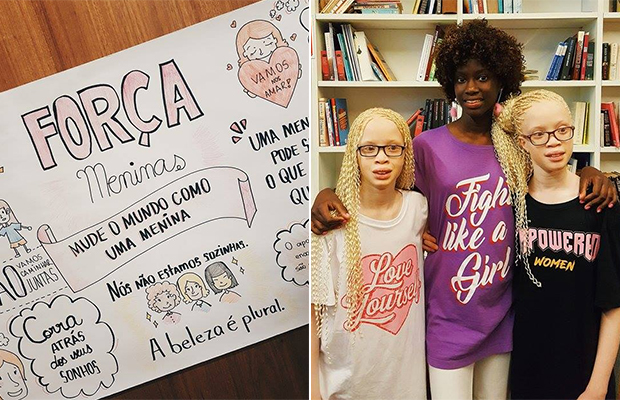 FORÇA
Meninas
MUDE O MUNDO COMO
UMA MENINA
VAMOS
NOS
AMAR!
UMA MEN
PODE S
O QUE
QU
ÃO
VAMOS
CAMINHAR
JUNTAS
Nós NÃO ESTAMOS SOZINHAS.
A beleza é plural.
Corra
ATRÁS
dos seus
SONHOS
Love
Yourself
Fight
like a
Girl
MPOWERED
WOMEN